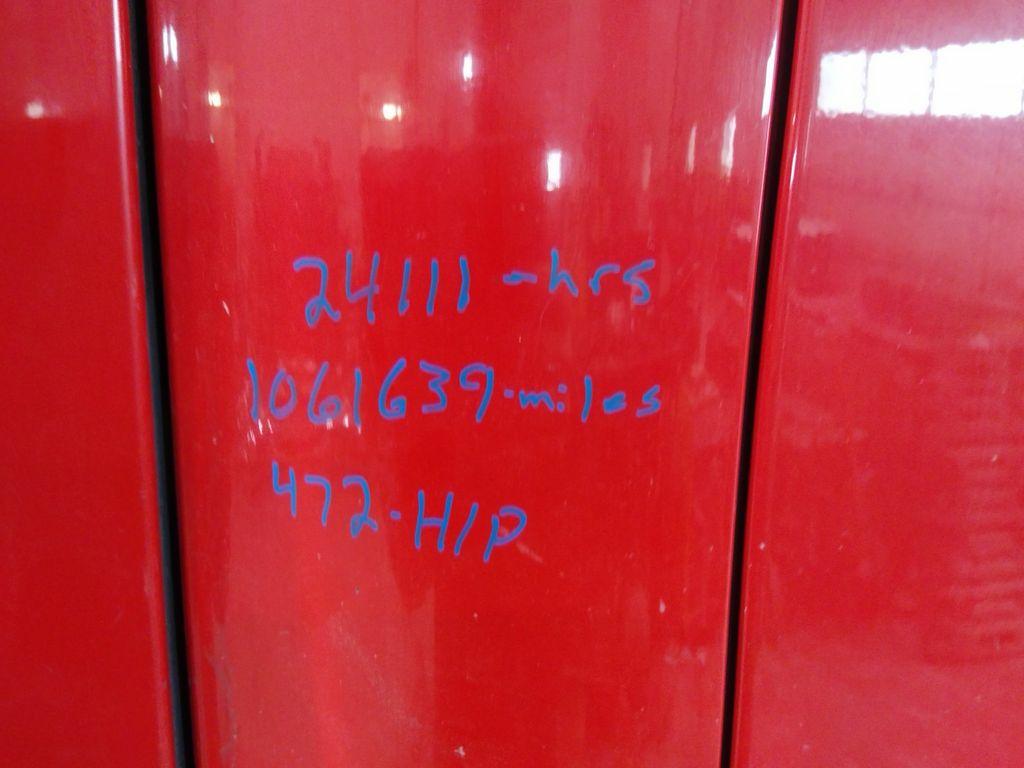 24111 -hrs
1061639-miles
472-H/P